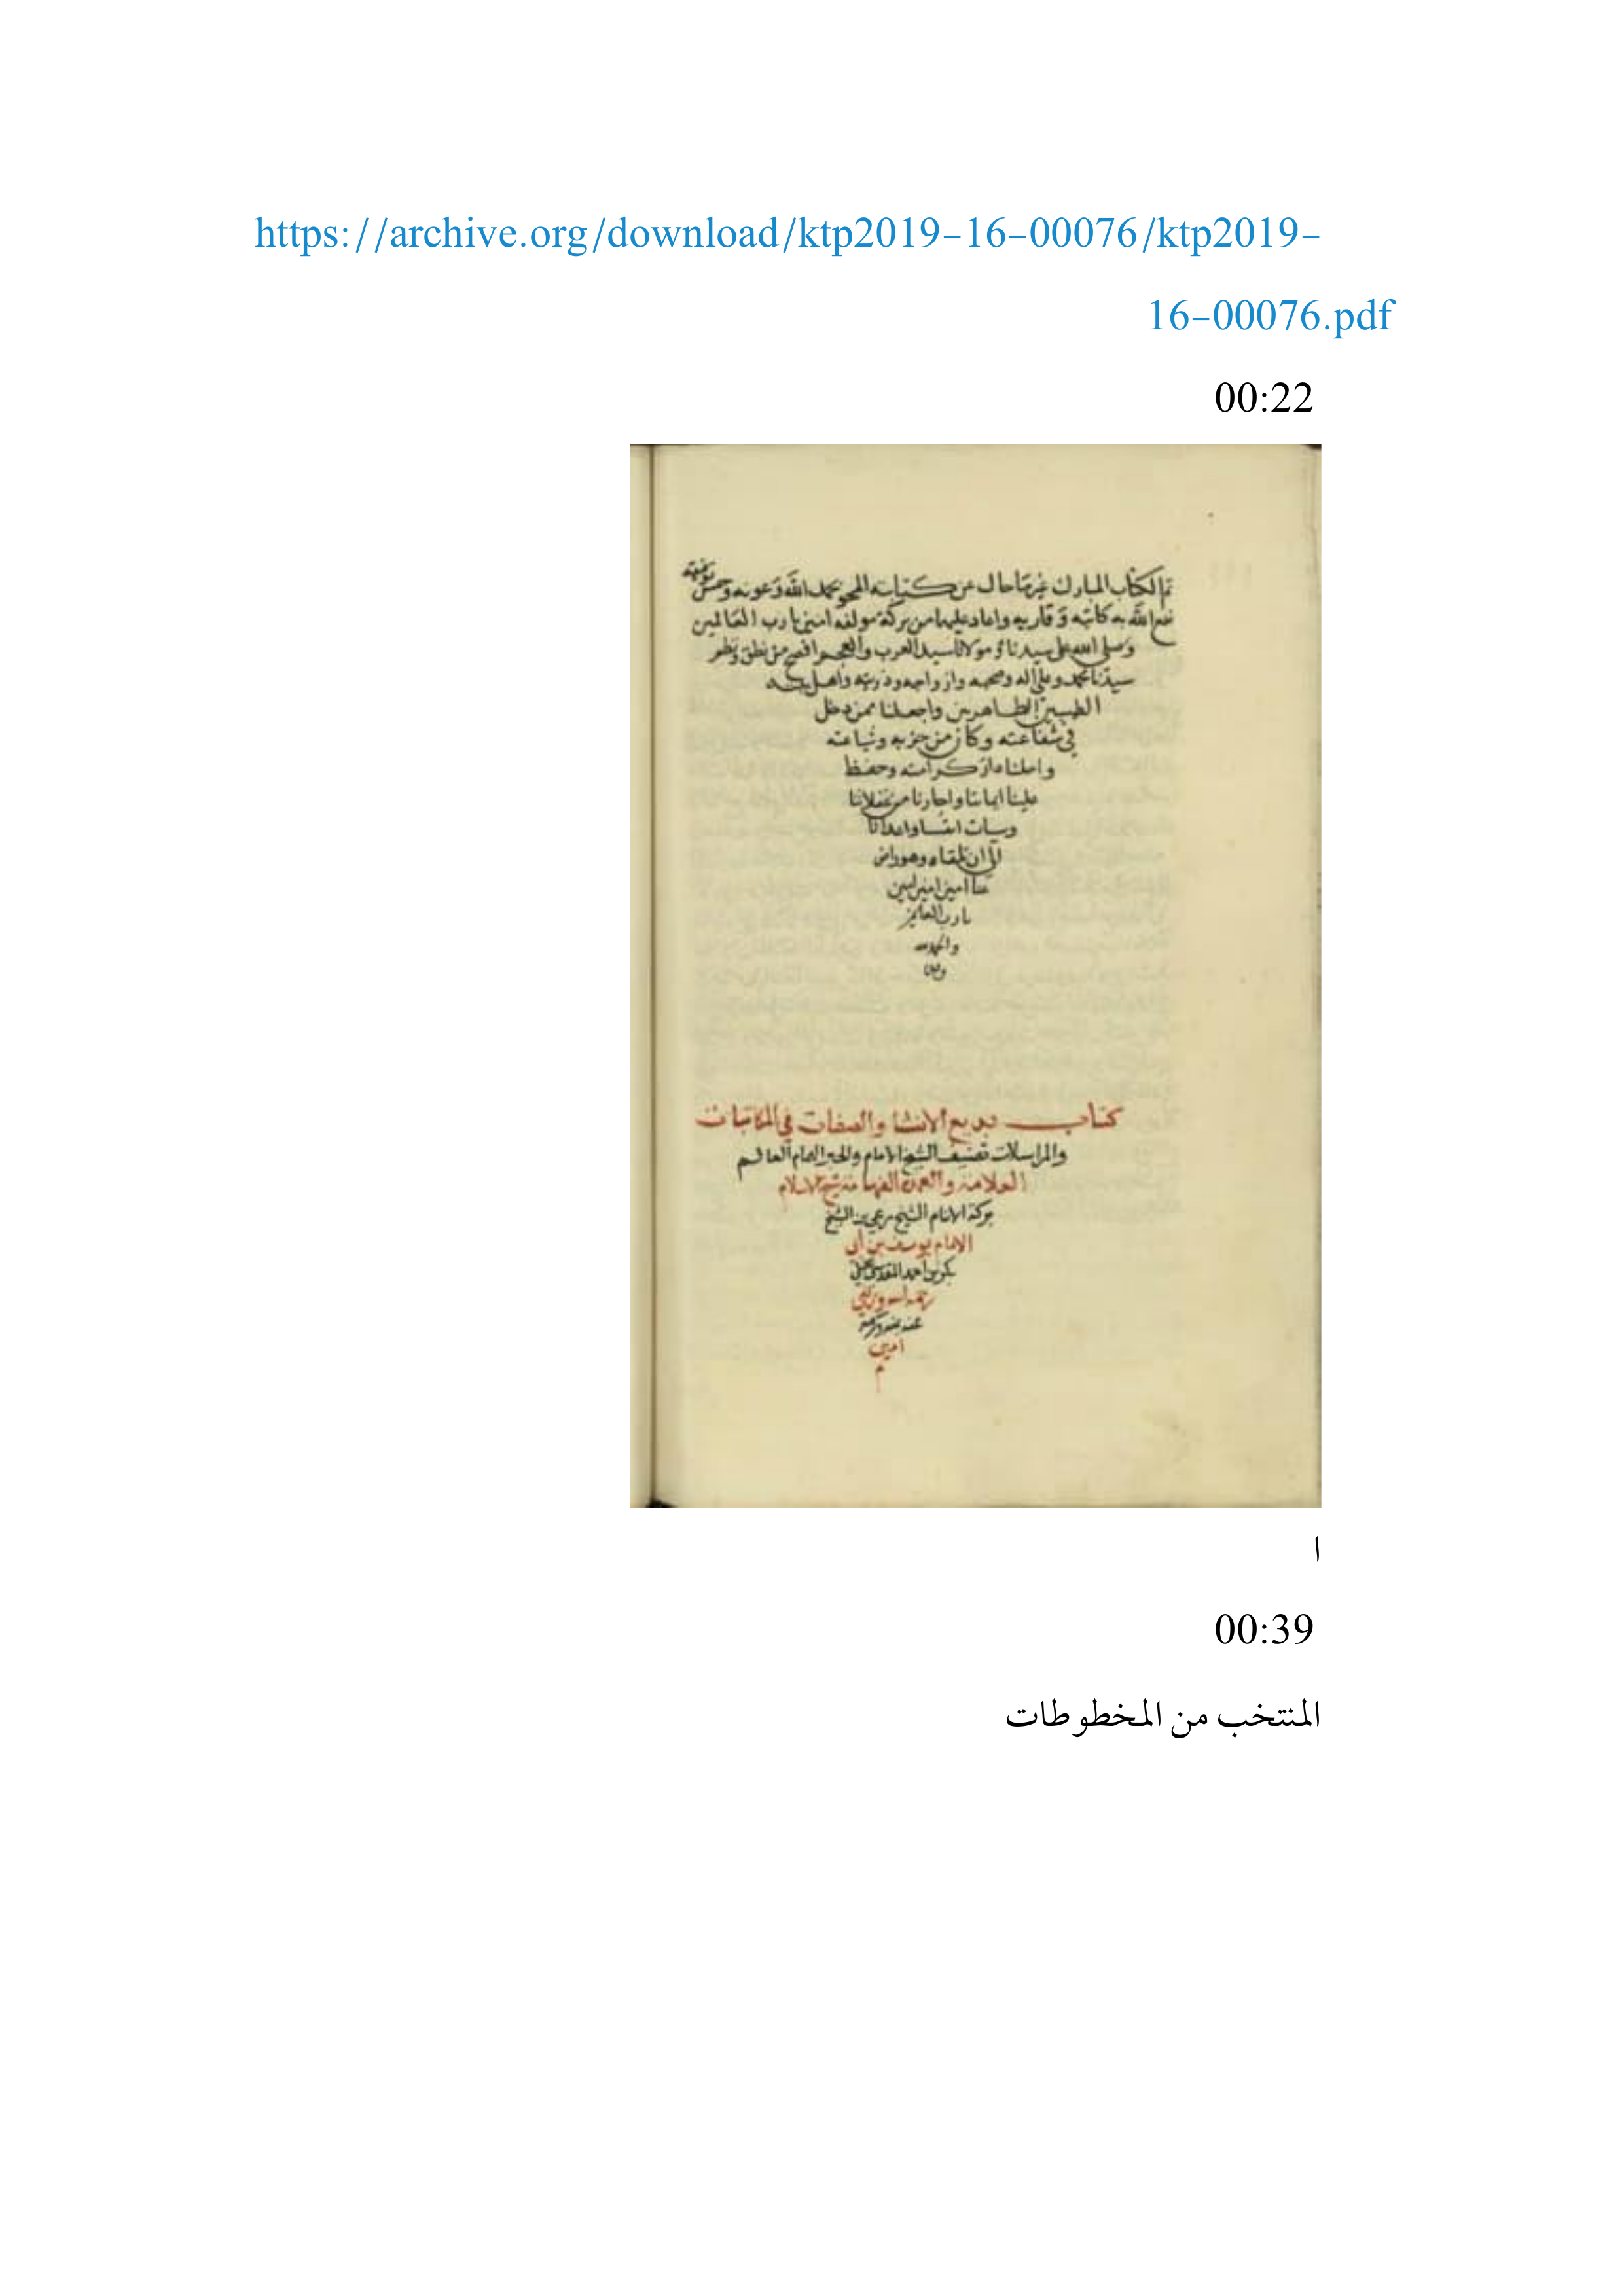 https://archive.org/download/ktp2019-16-00076/ktp2019-
16-00076.pdf
00:22
تم الكتاب المبارك عن كتابته بحمد الله وعونه وحسن توفيقه
نفع الله به كاتبه وقاريه واعاد عليهما من بركة مولفه امين يا رب العالمين
وصلى الله على سيدنا ومولانا سيد العرب والعجم افصح من نطق ونظر
سيدنا محمد وعلى اله وصحبه وازواجه وذريته واهل بيته
الطيبين الطاهرين واجعلنا ممن دخل
في شفاعته وكان من حزبه
دار كرامته وحفظ
علينا ايماننا واجارنا من
وسيات
الى ان نلقاه وهو راض
عنا امين امين امين
يا رب العالمين
والحمد لله
كتاب بديع الانشا والصفات في المكاتبات
والمراسلات تصنيف الشيخ الامام والحبر الهمام العالم
العلامة والعمدة الفهامة شيخ الاسلام
بركة الانام الشيخ مرعي بن الشيخ
الامام يوسف بن أبي
بكر بن احمد المقدسي الحنبلي
رحمه الله ورضي
عنه بمنه وكرمه
امين
م
ا
00:39
المنتخب من المخطوطات